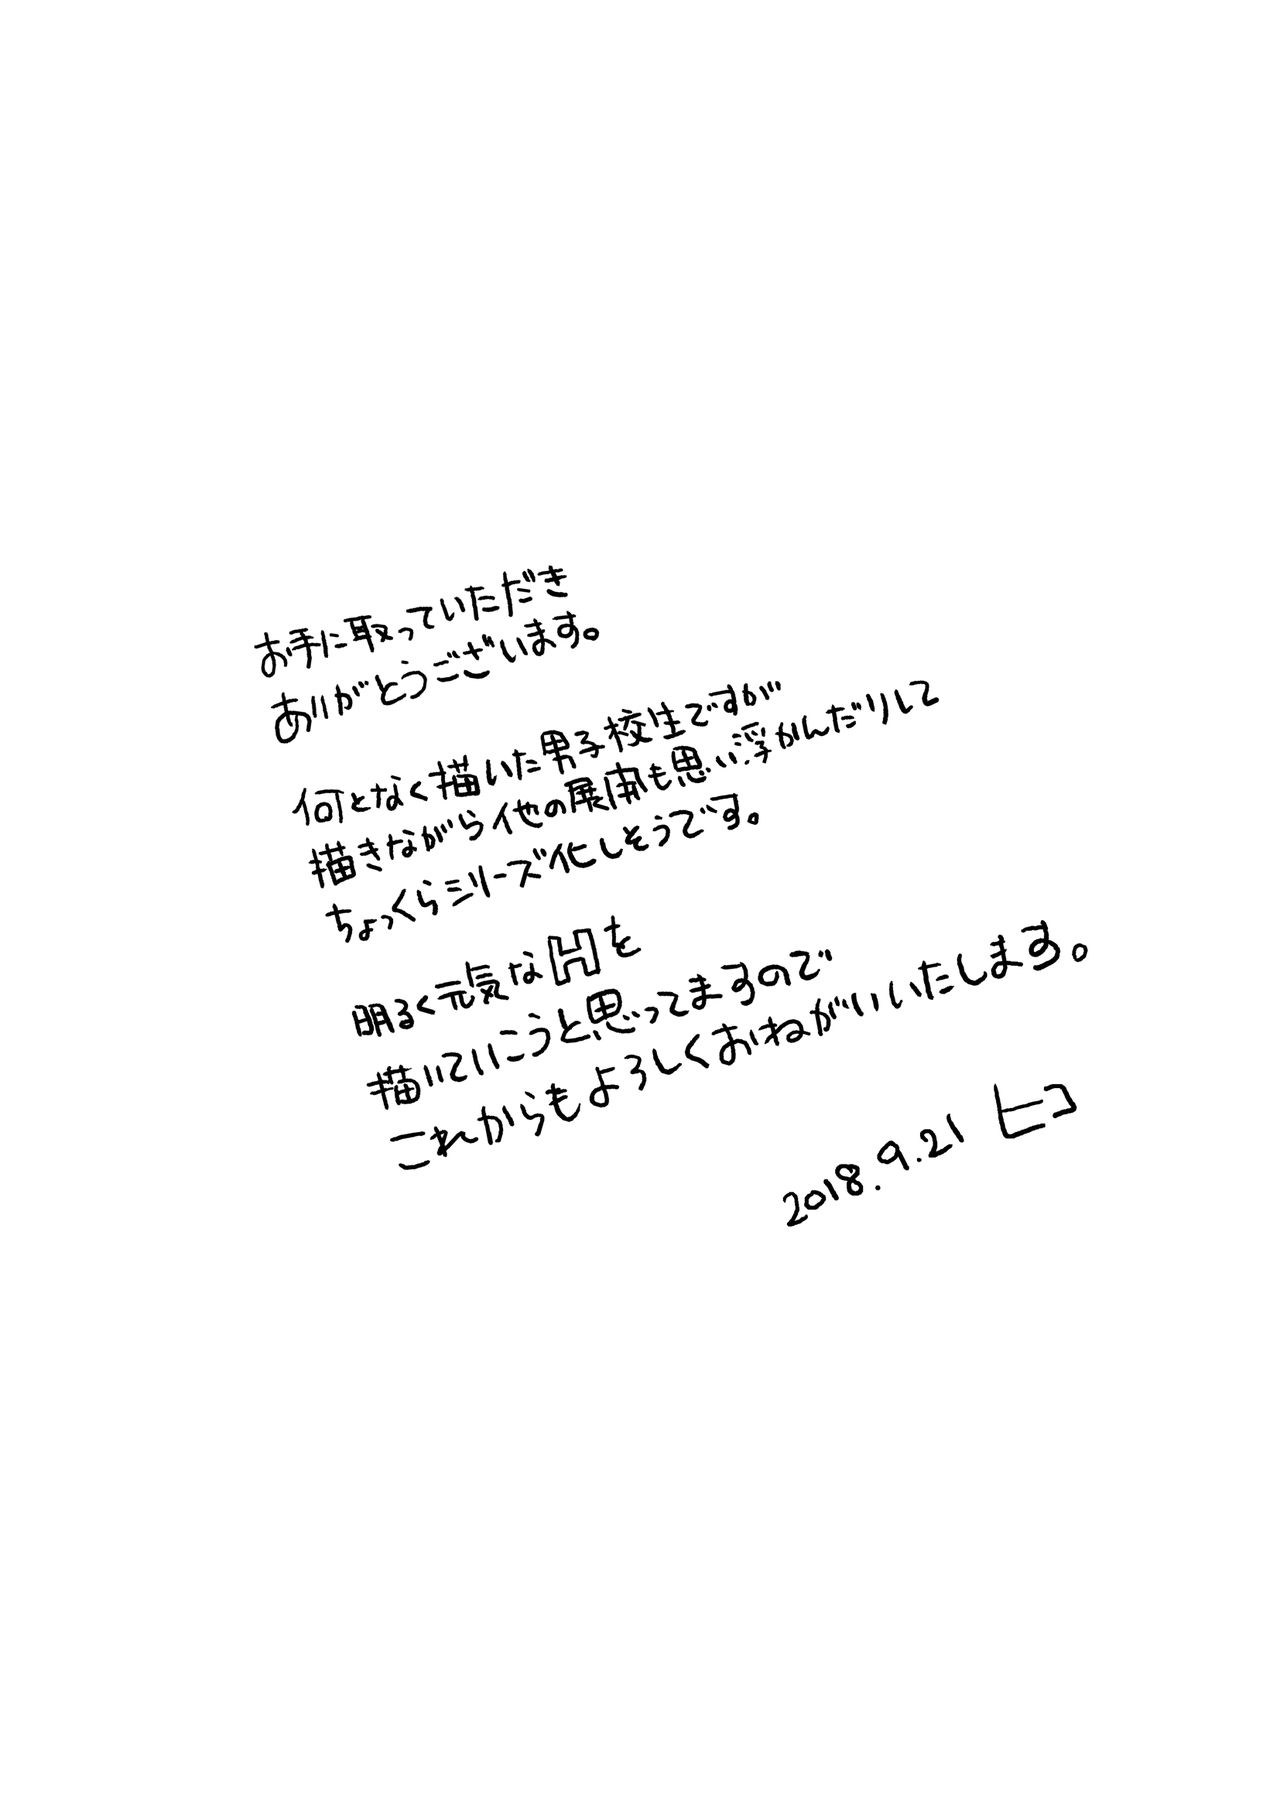 お手に取っていただき
ありがとうございます。
何となく描いた男子校生ですが
描きながら他の展開も思い浮かんだりして
ちょっくらシリーズ化しそうです。
明るく元気なHを
描いていこうと思ってますので
これからもよろしくおねがいいたします。
2018.9.21 ヒコ